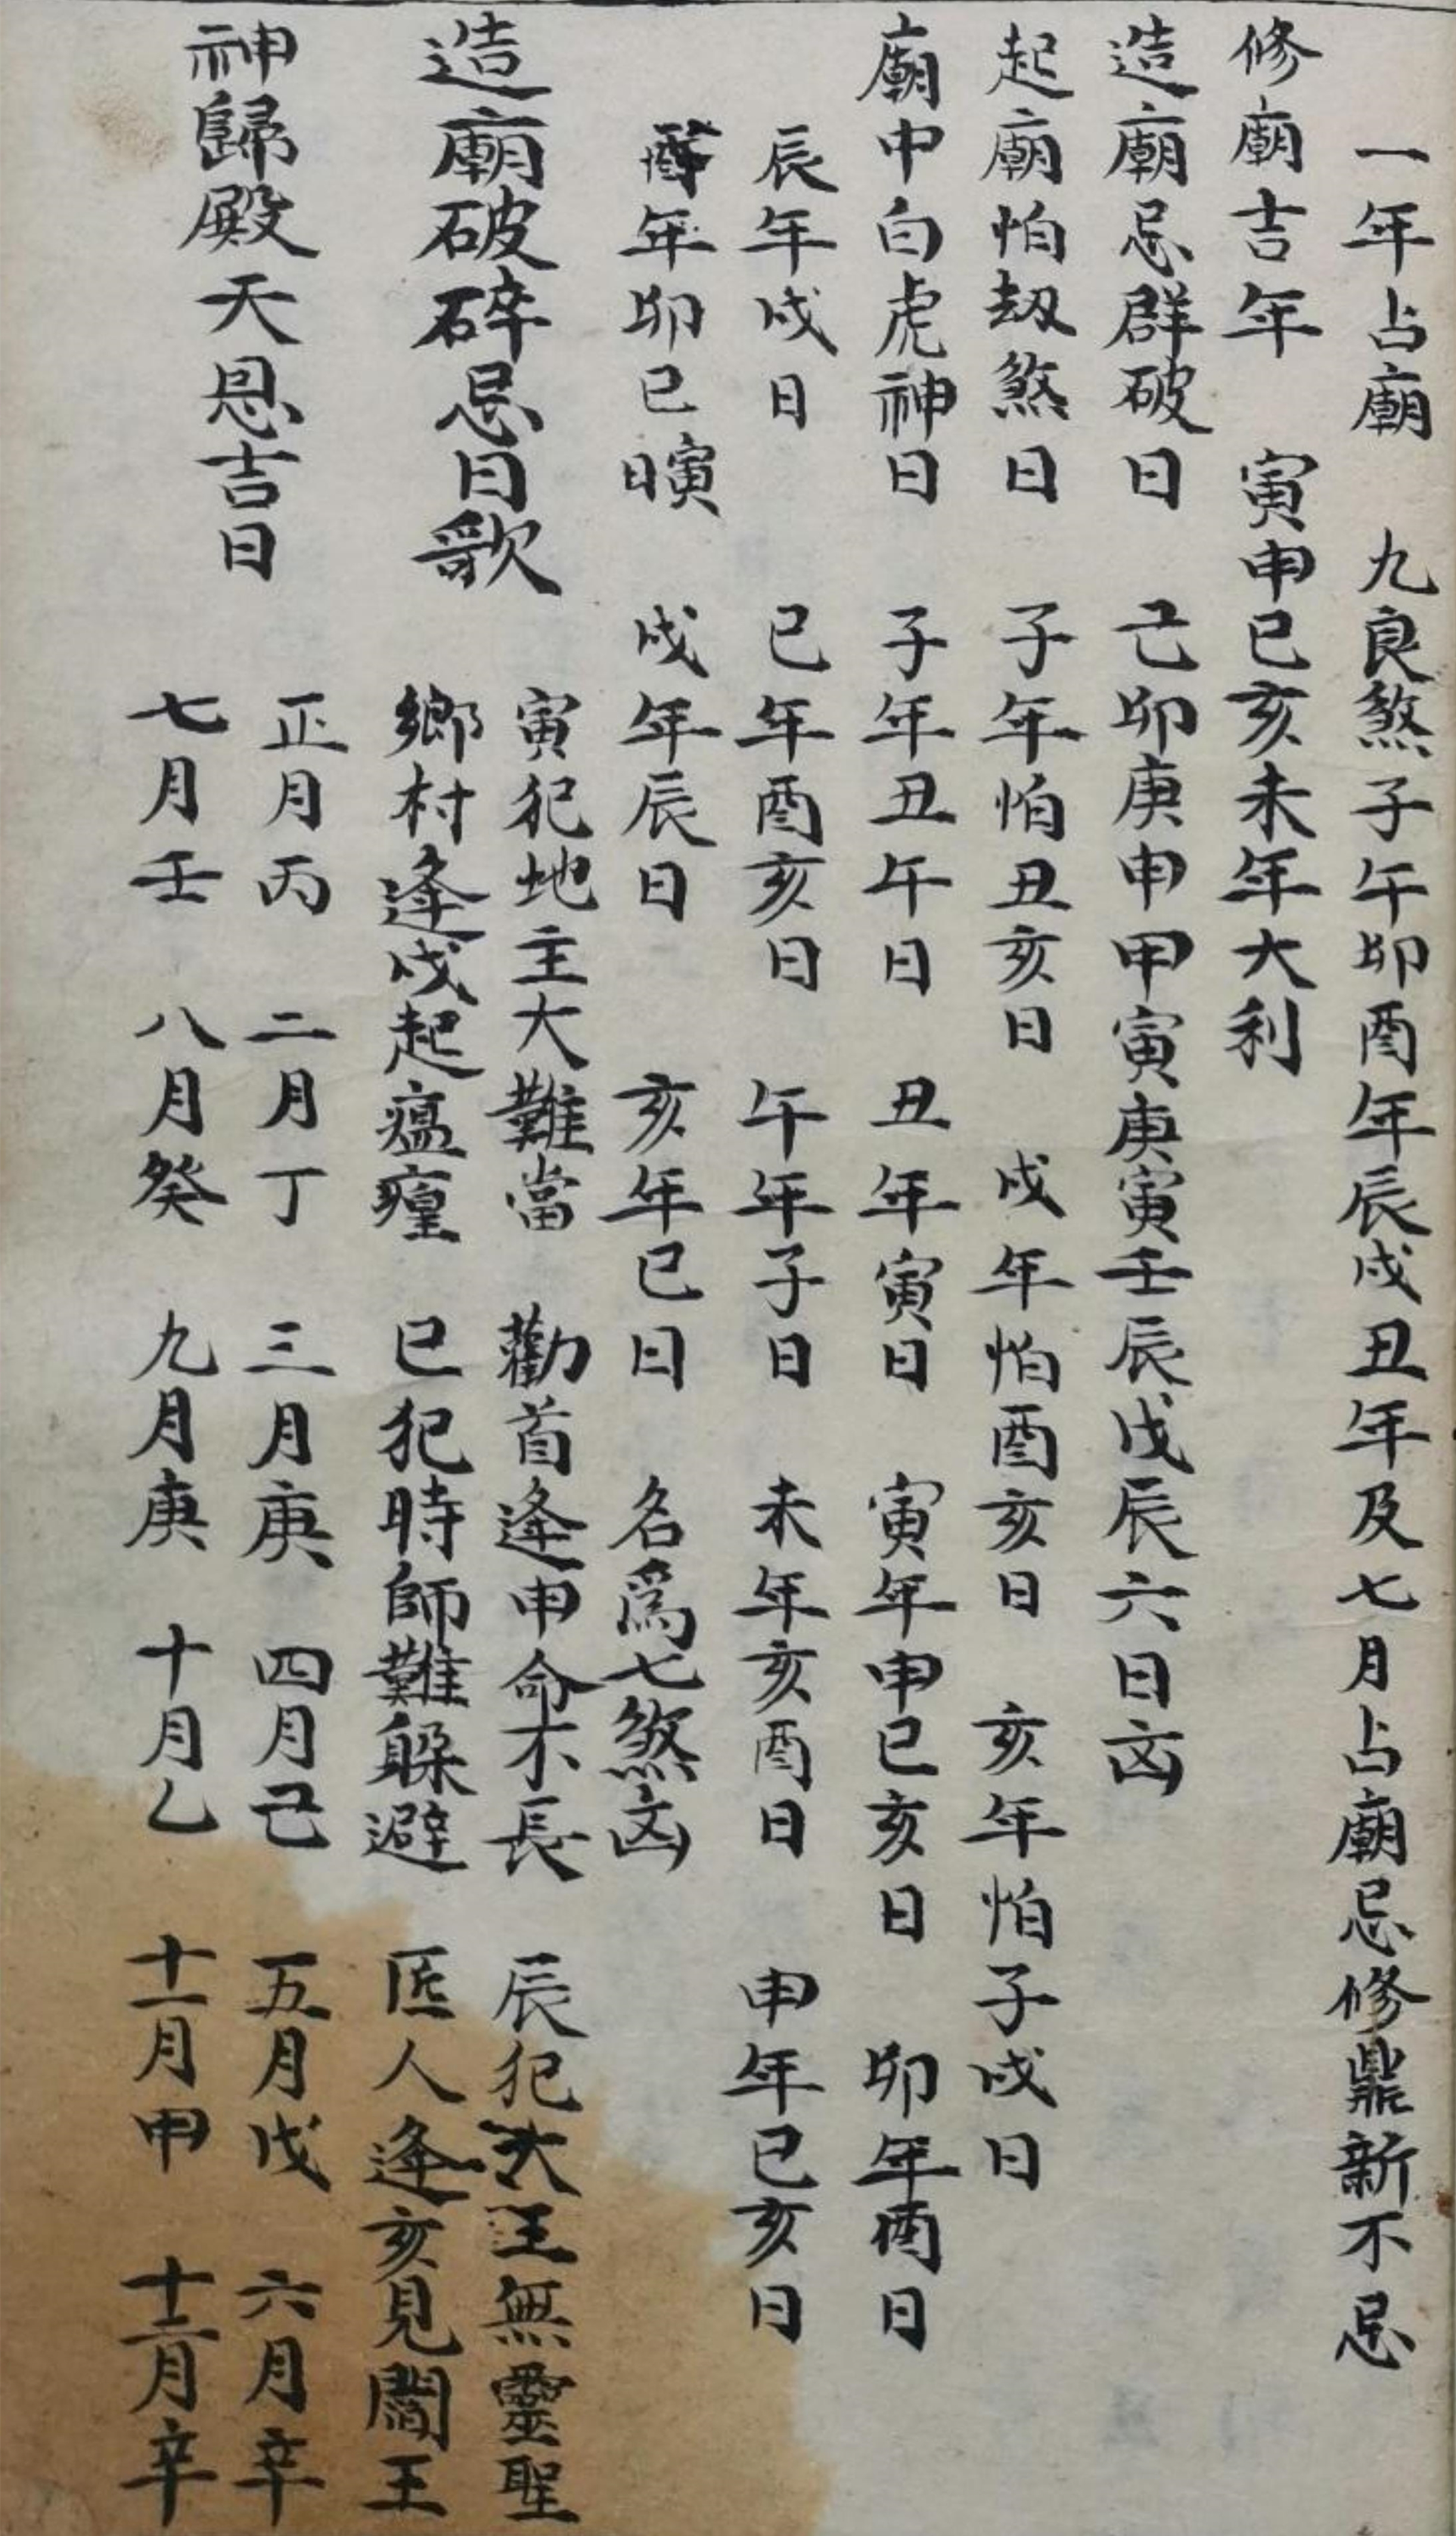 一年占廟　九良煞子午卯酉年辰戌丑年及七月占廟忌修鼎新不忌
修廟吉年　寅申巳亥未年大利
造廟忌群破日　己卯庚申甲寅庚寅壬辰戊辰六日凶
起廟怕刼煞日　子年怕丑亥日　戌年怕酉亥日　亥年怕子戌日
廟中白虎神日　子年丑午日　丑年寅日　寅年申巳亥日　卯年酉日
辰年戌日　巳年酉亥日　午年子日　未年亥酉日　申年巳亥日
酉年卯巳日寅　戌年辰日　亥年巳日　名爲七煞凶
造廟破碎忌日歌　寅犯地主大難當　勸首逢申命不長　辰犯大王無靈聖
鄉村逢戌起瘟㾮　巳犯時師難躲避　匠人逢亥見閻王
神歸殿天恩吉日　正月丙　二月丁　三月庚　四月己　五月戊　六月辛
七月壬　八月癸　九月庚　十月乙　十一月甲　十二月辛